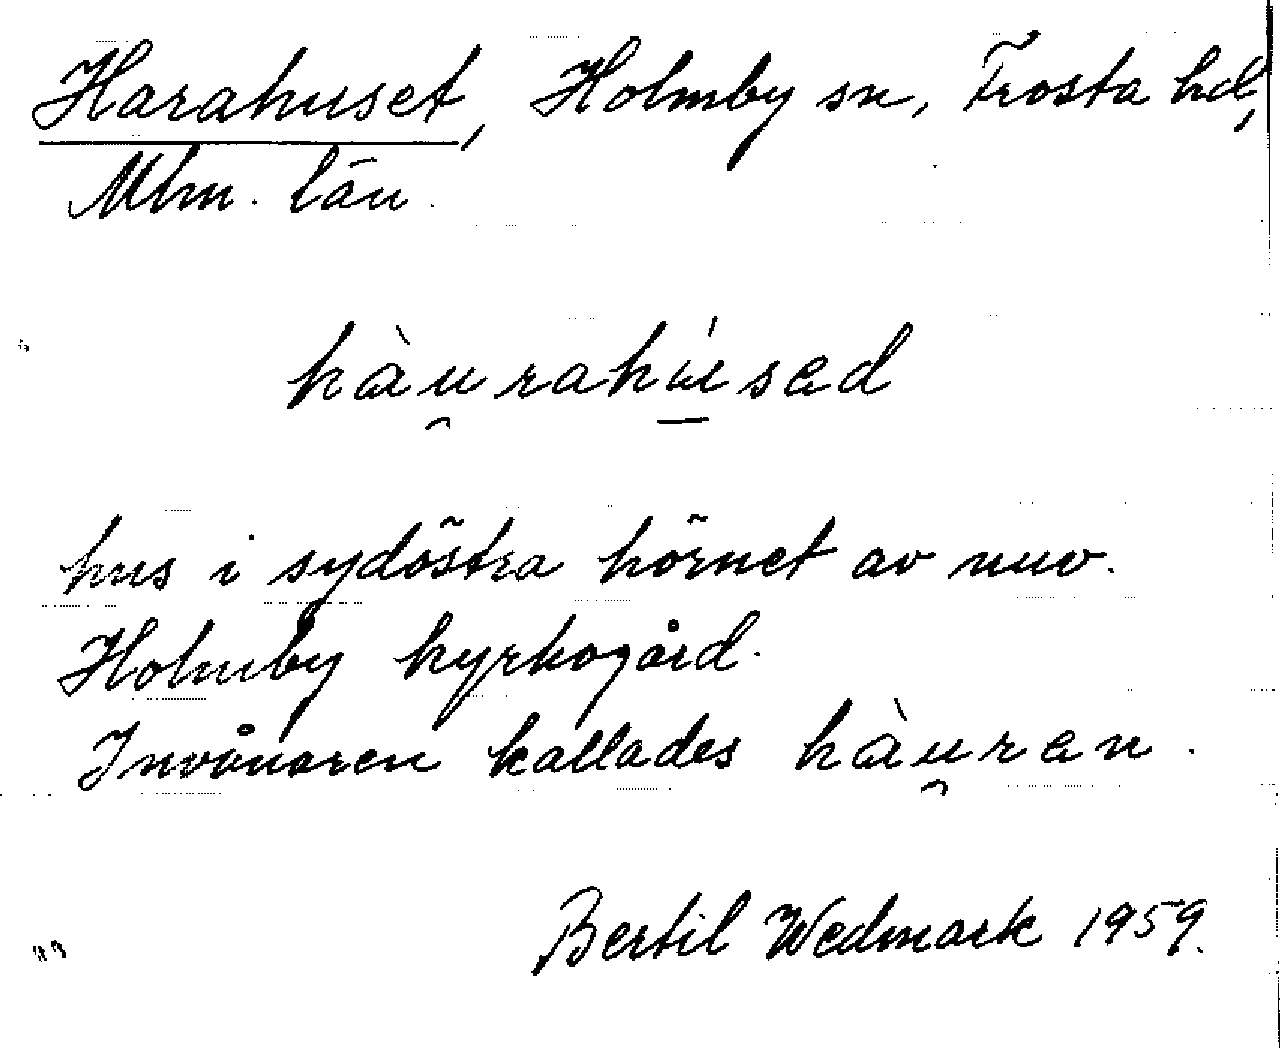 Harahuset, Holmby sn, Frosta hd,
Mlm. län.
hàu̯rahúsed
hus i sydöstra hörnet av nuv.
Holmby kyrkogård.
Invånaren kallades hàu̯ren.
Bertil Wedmark 1959.